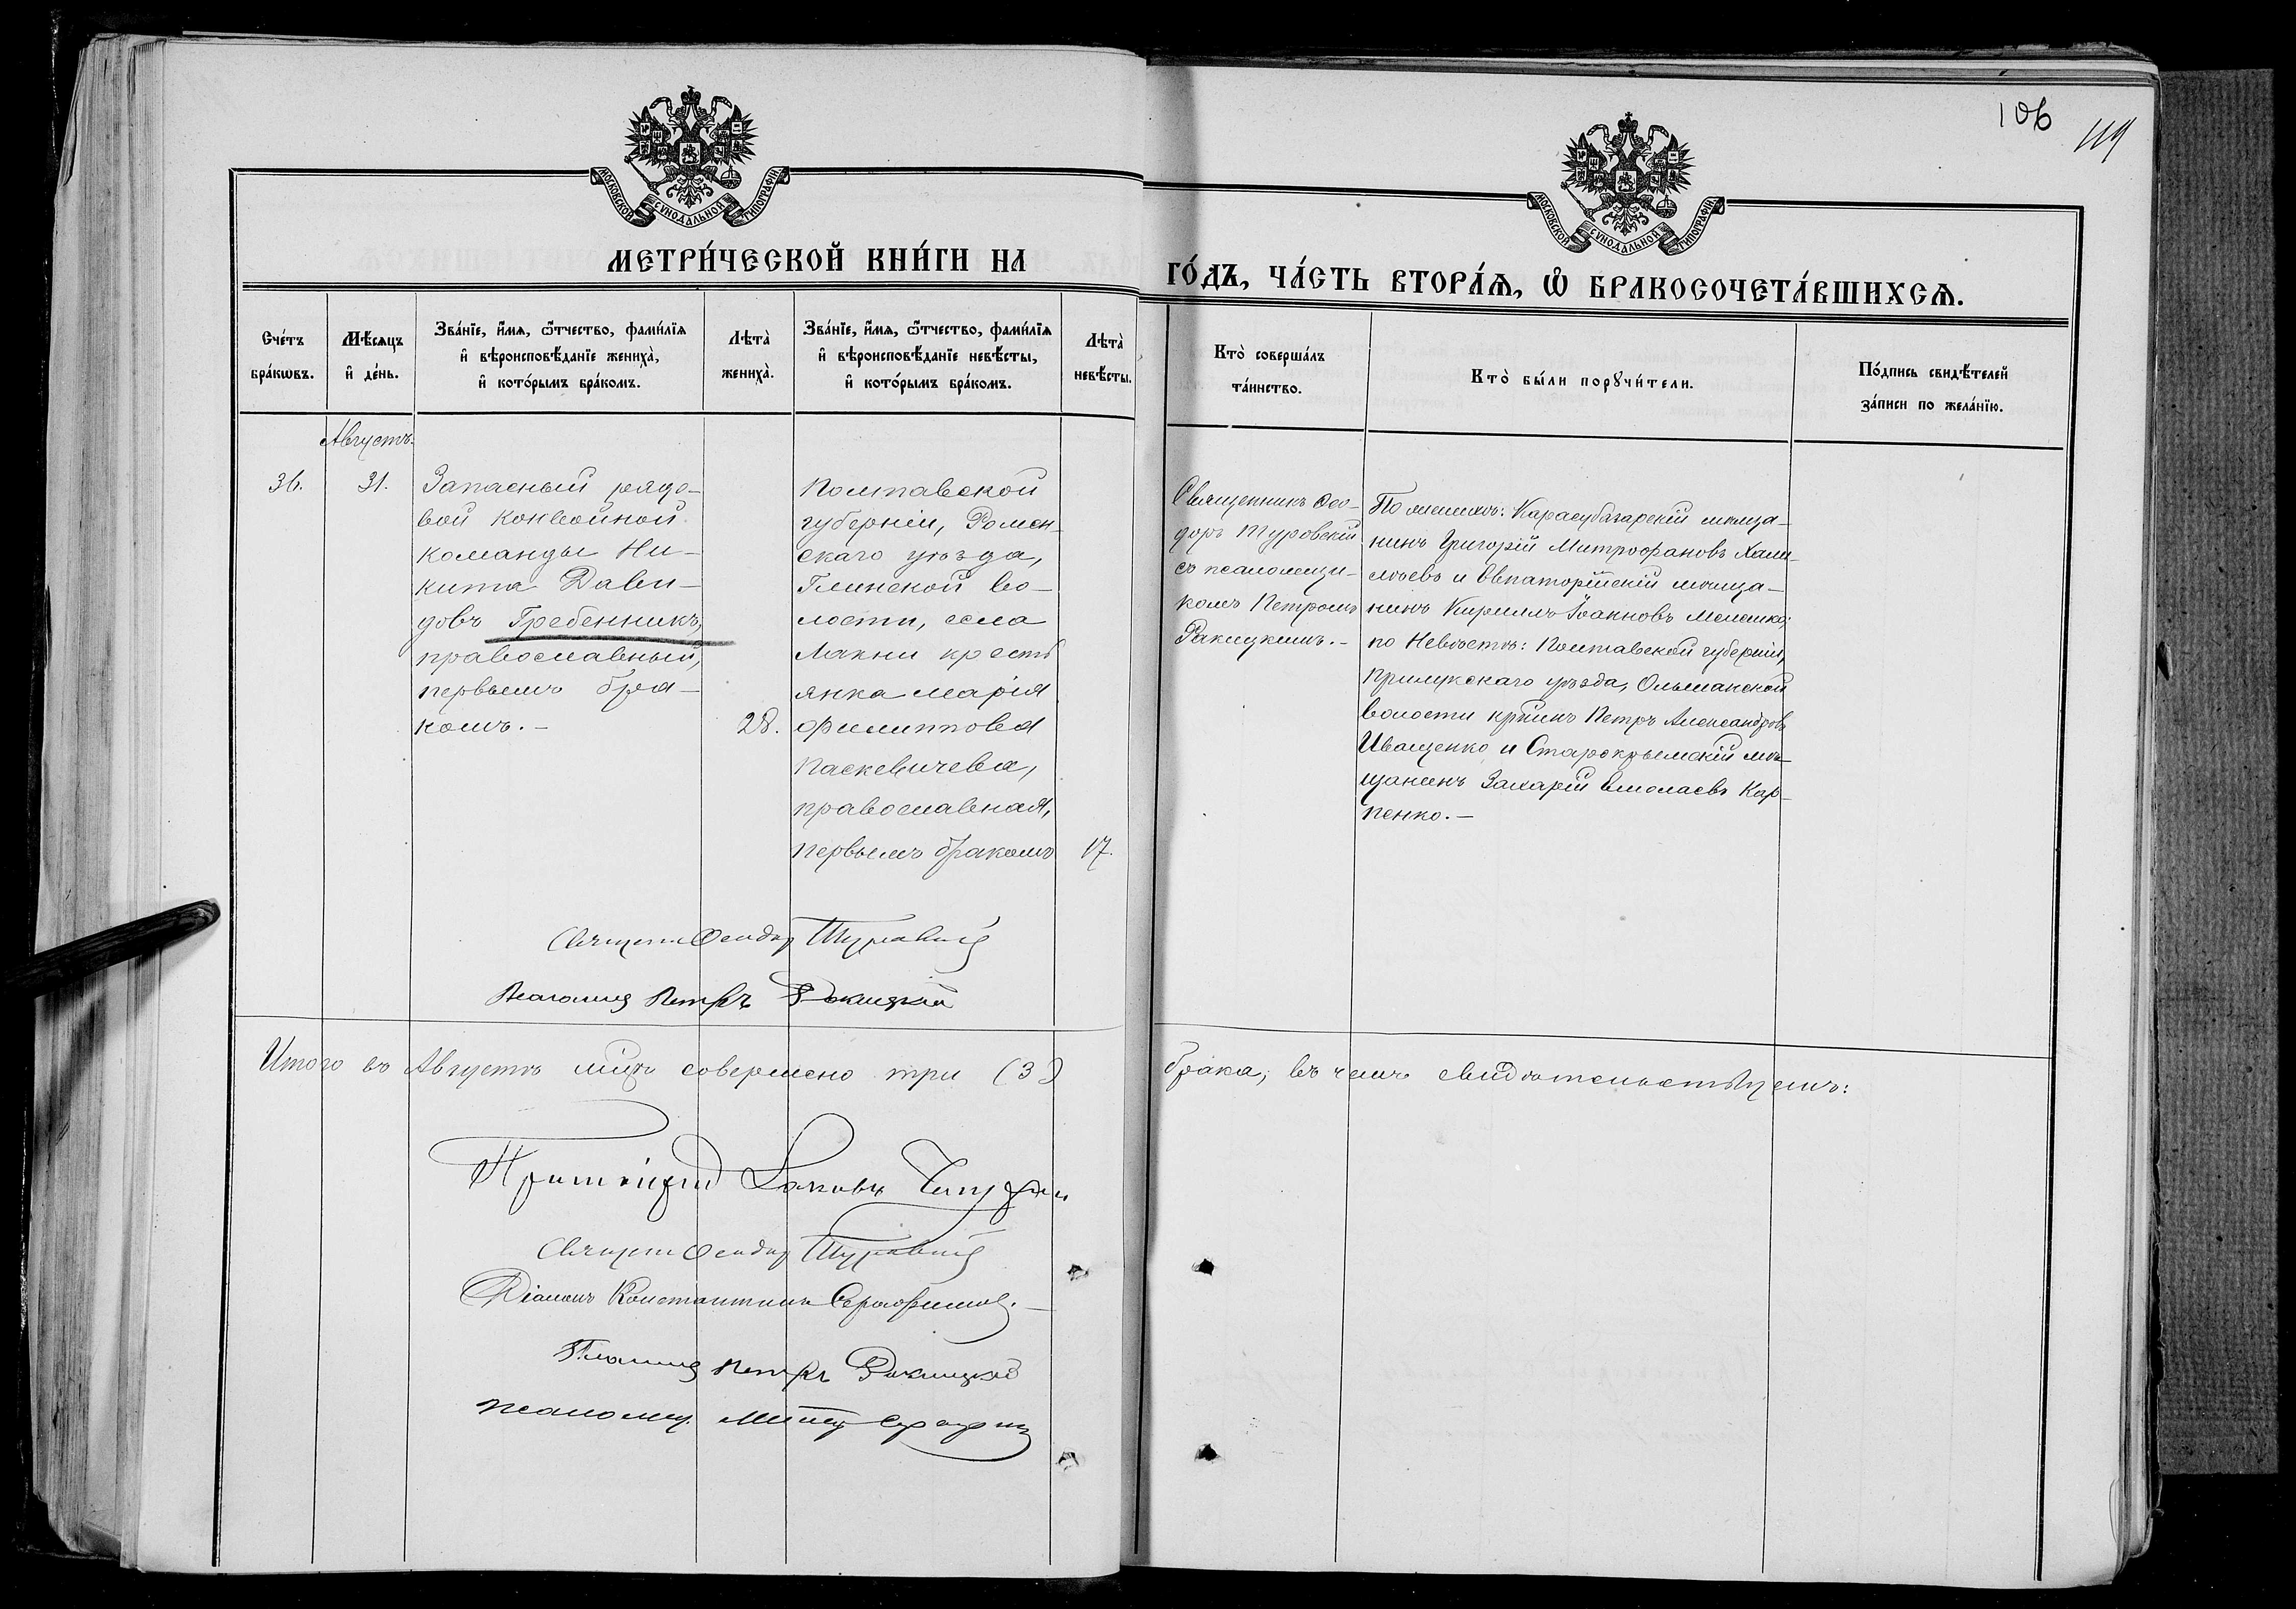 106
119
МОСКОВСКОЙ СѴНОДАЛЬНОЙ ТИПОГРАФІИ
МОСКОВСКОЙ СѴНОДАЛЬНОЙ ТИПОГРАФІИ
МЕТРИ́ЧЕСКОЙ КНИ́ГИ НА
ГО́ДЪ, ЧА́СТЬ ВТОРА́Ѧ, Ѽ БРАКОСОЧЕТА́ВШИХСѦ.
Сче́тъ
бра́кѡвъ.
Мѣ́сяцъ
и҆ де́нь.
Зва́нїе, и҆́мѧ, ѻ҆́тчество, фами́лїѧ
и҆ вѣроисповѣ́данїе жениха̀,
и҆ кото́рымъ бра́комъ.
Лѣта̀
жениха̀.
Зва́нїе, и҆́мѧ, ѻ҆́тчество, фами́лїѧ
и҆ вѣроисповѣ́данїе невѣ́сты,
и҆ кото́рымъ бра́комъ.
Лѣта̀
невѣ́сты.
Кто̀ соверша́лъ
та́инство.
Кто̀ бы́ли порꙋчи́тели.
По́дпись свидѣ́телей
за́писи по жела́нїю.
Августъ.
36.
31.
Запасный рядо-
вой конвойной
команды Ни-
кита Дави-
довъ Гребенникъ,
православный,
первымъ бра-
комъ.-
28.
Полтавской
губерніи, Ромен-
скаго уѣзда,
Глинской во-
лости, села
крестъ
янка Марія
Филиппова
Паскевичева,
православная,
первымъ бракомъ
17.
Священникъ Ѳео-
доръ Туровскій
съ псаломщи-
комъ Петромъ
Ракицкимъ.-
По женихѣ: Карасубазарскій мѣща-
нинъ Григорій Митрофановъ
и Евпаторійскій мѣща-
нинъ Кириллъ Іоанновъ
по Невѣстѣ: Полтавской губерніи,
Прилукскаго уѣзда, Ольшанской
волости кр̃нинъ Петръ Александровъ
Иващенко и Старокрымскій мѣ-
щанинъ Захарій Ермолаевъ Кар-
пенко.-
Священ Ѳеодор Туровскій
Псаломщ Петръ Ракицкій
Итого въ Августѣ мцѣ совершено три (3)
брака, въ чемъ свидѣтельствуемъ:
Протоіерей Іаковъ
Священ Ѳеодор Туровскій
Діаконъ Константинъ Серафимов.-
Псаломщ Петръ Ракицкій
Псаломщ.